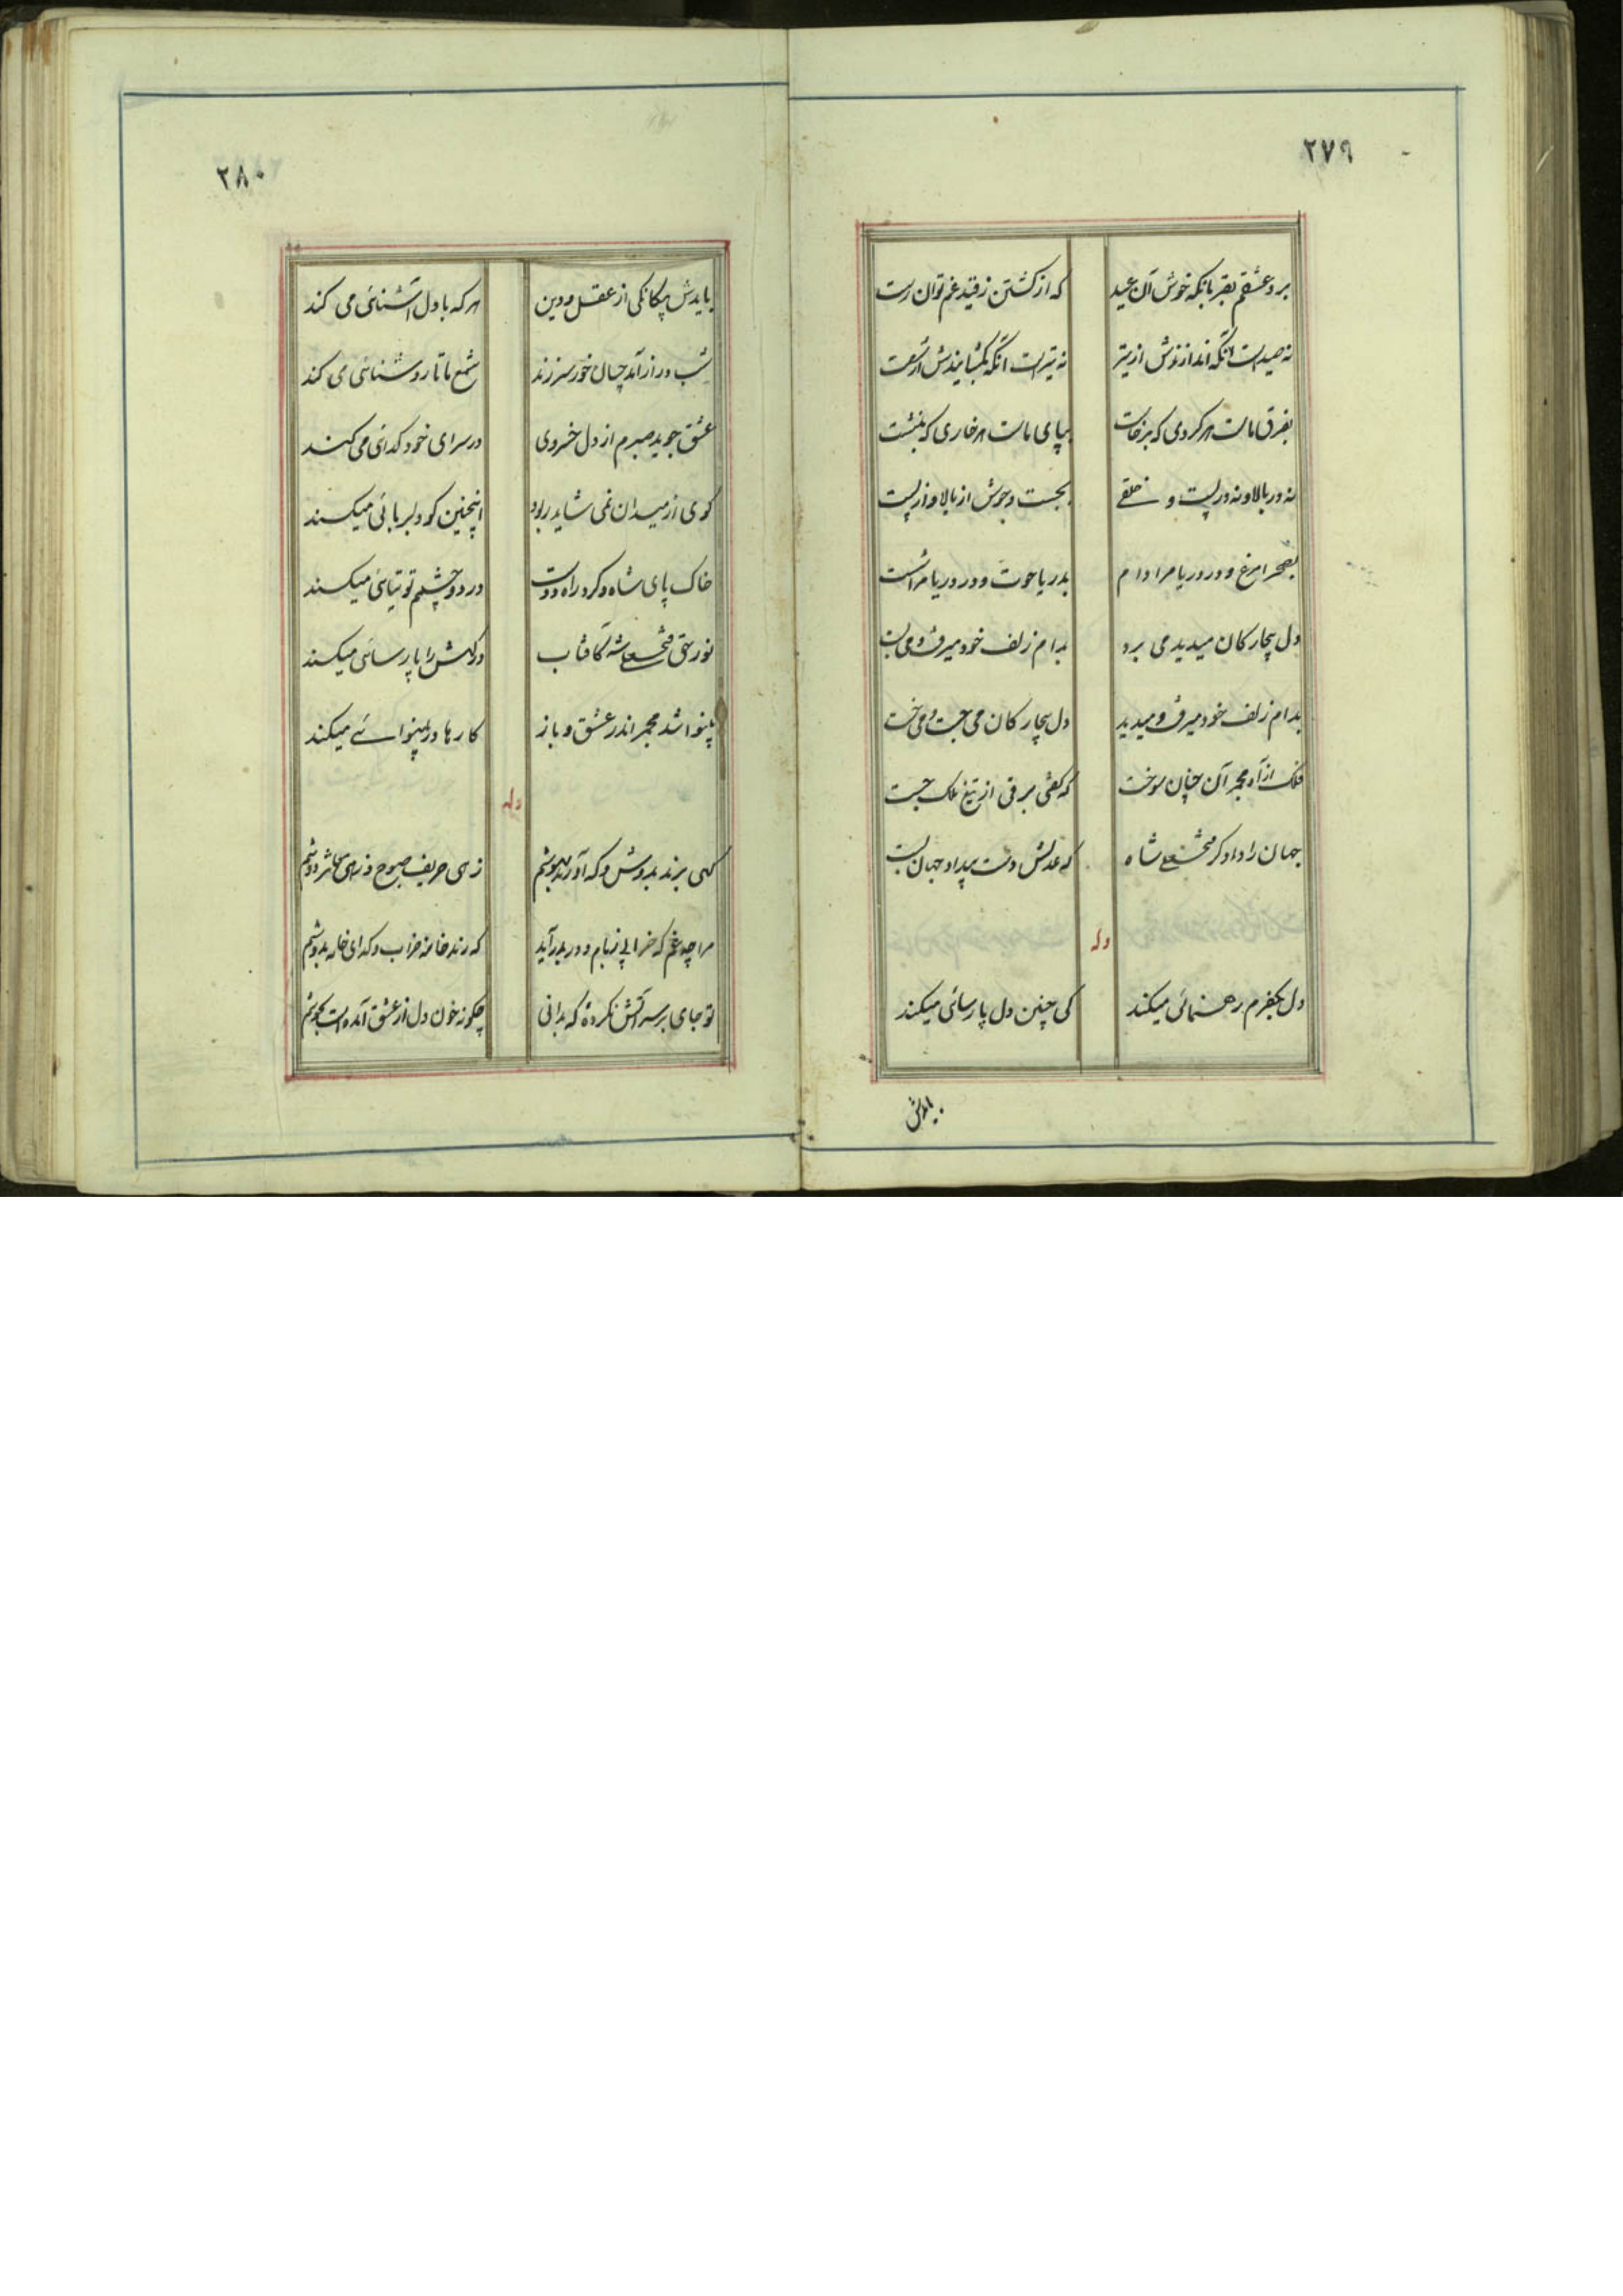 ۲۷۹
برد عشقم بقربانگه خوش آن عید
که از کشتن ز قید غم توان رست
نه صیدست آنکه اندازندش از تیر
نه تیرست آنکه بگشایندش از شست
بفرق ماست هر گردی که برخاست
بپای ماست هر خاری که بنشست
نه در بالا و نه در پست و خلقی
بجست و جوش از بالا و از پست
بصحرا مرغ و در دریا مرا دام
بدریا حوت و در دریا مرا شست
دل بیچارگان میدید می برد
بدام زلف خود میرفت و می بست
بدام زلف خود میرفت و میدید
دل بیچارگان می جست و می خست
فلک از آه مجمر آن چنان سوخت
که گفتی برقی از تیغ ملک جست
جهان را دادگر فتحعلی شاه
که عدلش دست بیداد جهان بست
وله
دل بکفرم رهنمائی میکند
کی چنین دل پارسائی میکند
بایدش
۲۸۰
بایدش بیگانگی از عقل و دین
هر که با دل آشنائی می کند
شب دراز آمد چسان خور سر زند
شمع ما تا روشنائی می کند
عشق جوید صبرم از دل خسروی
در سرای خود گدائی می کند
گوی از میدان نمی شاید ربود
اینچنین کو دلربائی میکند
خاک پای شاه و گرد راه دوست
در دو چشمم توتیائی میکند
نور حق فتحعلی شه کافتاب
درگهش را پارسائی میکند
بینوا شد مجمر اندر عشق و باز
کارها در بینوائی میکند
وله
گهی برند بدوش و گه آورند بهوشم
زهی حریف صبوح و زهی معاشر دوشم
مرا چه غم که خرابی ز بام و در بدر آید
که رند خانه خراب و گدای خانه بدوشم
تو جای بر سر آتش نکرده که بدانی
چگونه خون دل از عشق آمده است بجوشم